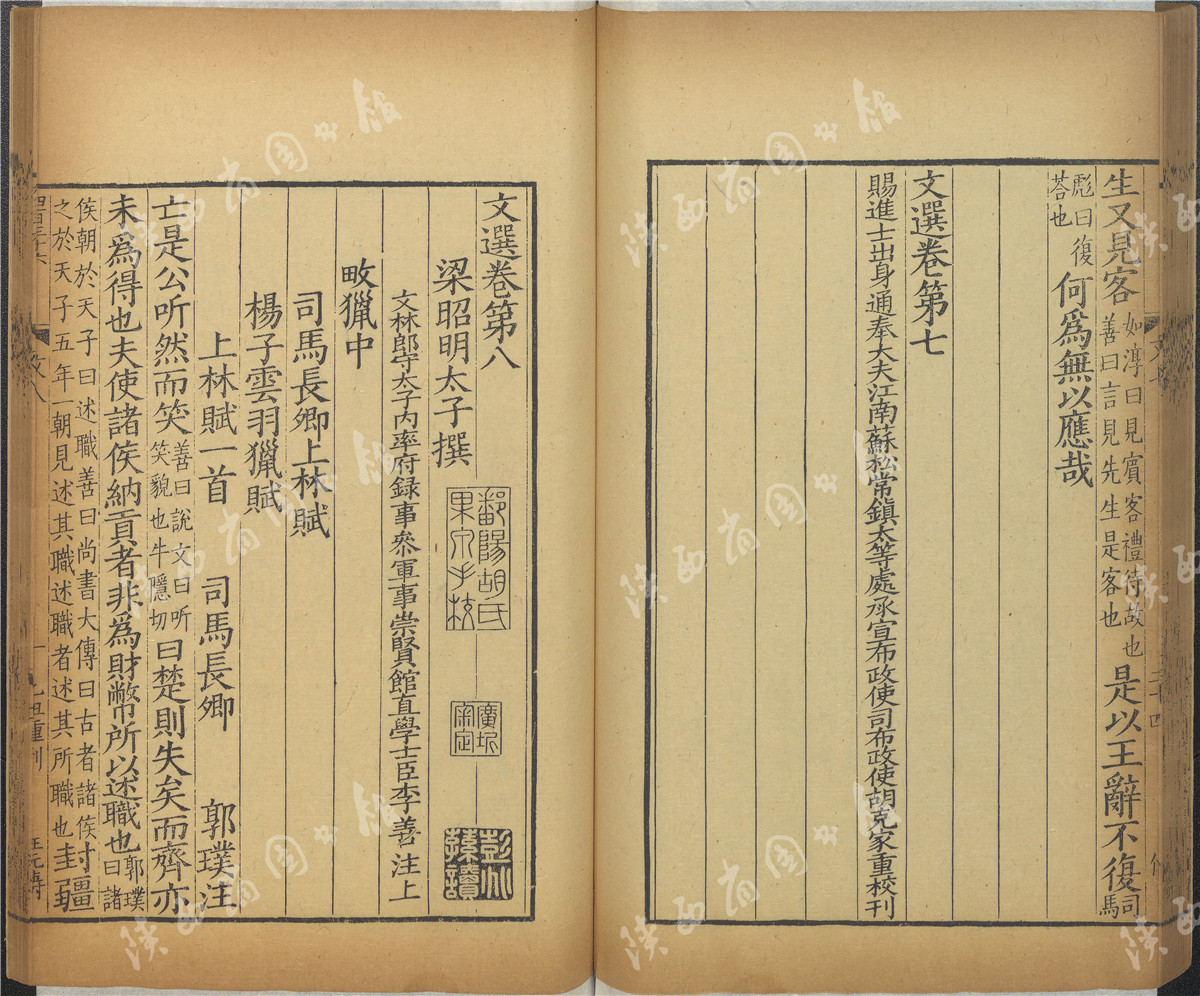 生又見客如淳曰見賓客禮待故也善曰言見先生是客也是以王辭不復司馬
彪曰復荅也何爲無以應哉
文選卷第七
賜進士出身通奉大夫江南蘇松常鎮太等處承宣布政使司布政使胡克家重校刊
文選卷第八
梁昭明太子撰
文林郎守太子内率府録事參軍事崇賢館直學士臣李善注上
畋獵中
司馬長卿上林賦
楊子雲羽獵賦
上林賦一首 司馬長卿 郭璞注
亡是公听然而笑善曰說文曰听笑貌也牛隱切曰楚則失矣而齊亦
未爲得也夫使諸侯納貢者非爲財幣所以述職也郭璞曰諸
侯朝於天子曰述職善曰尚書大傳曰古者諸侯之於天子五年一朝見述其職述職者述其所職也封疆
鄱陽胡氏果泉手校
彭兆蓀讀
乙丑重刊
陕西省图书馆